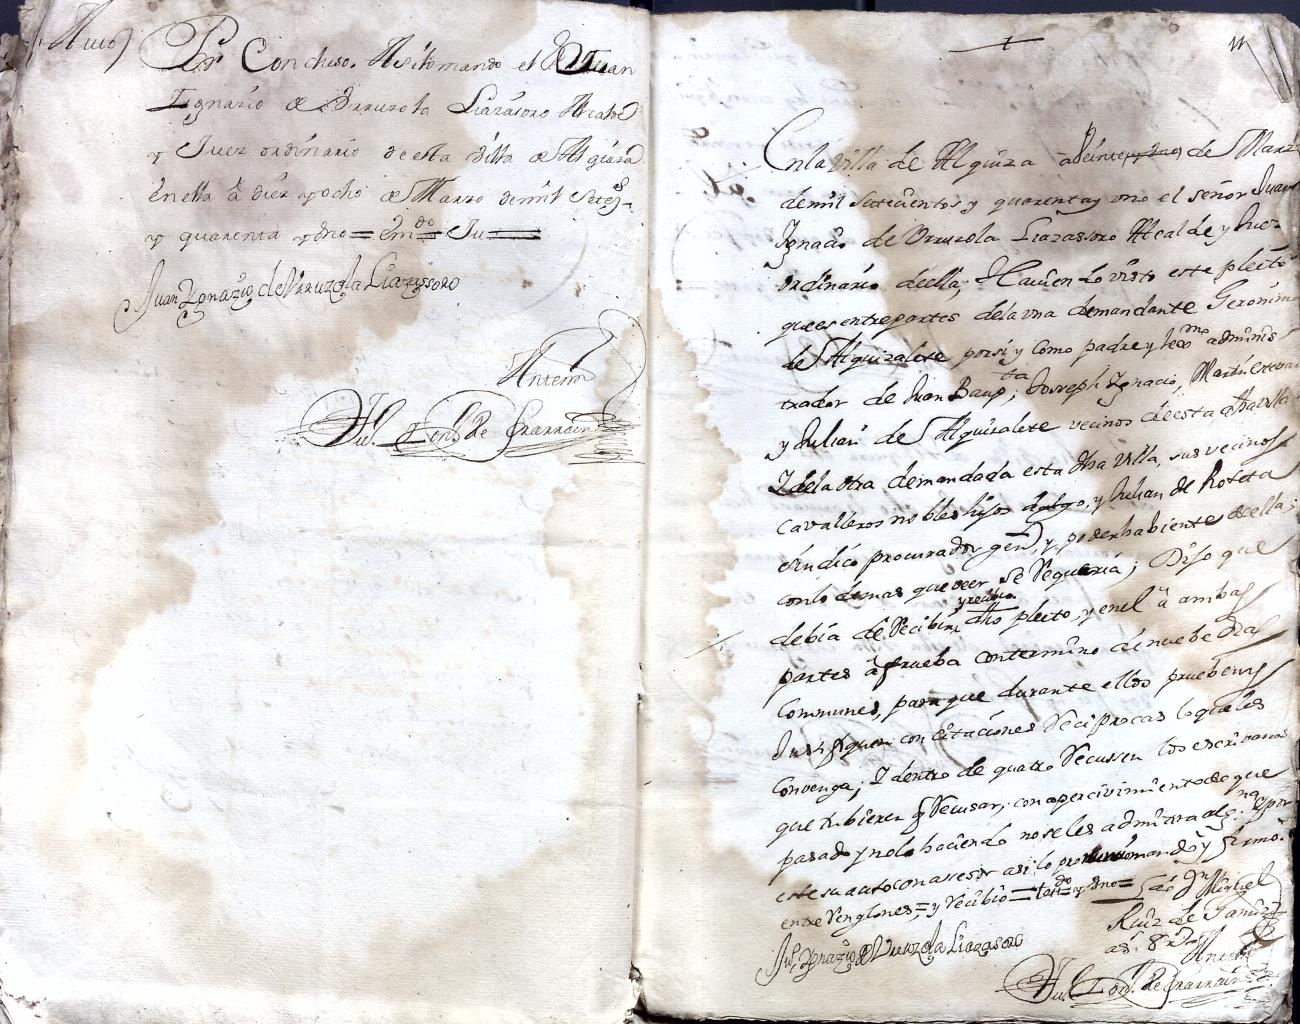 Auto
Por Concluso. Asilo mando el S.r Juan
Ignazio de Vrruzola Lizasoro Alcalde
y Juez ordinario de esta Villa de Alquiza
en ella â diez y ocho de Marzo de mil Setez.s
y quarenta y uno = em.do = Ju =
Juan Ygnazio de Vrruzola Lizassoro
Antemi
11
En la Villa de Alquiza â de Marzo
de mil setecientos y quarenta y uno el señor Juan
Ignacio de Vrruzola Lizassoro Alcalde y Juez
ordinario de ella; Haviendo visto este pleito
que es entre partes de la una demandante Geronimo
de Alquizalete por si y como padre y lex.mo adminis
trador de Juan Baup.ta, Joseph Ignacio, Martin Estevan
y Julian de Alquizalete vecinos de esta dha villa
Y de la otra demandada esta dha Villa, sus vecinos
cavalleros nobles hijos dalgo, y Julian de Roteta
sindico procurador gen.l, y poder habiente de ella;
con lo demas que veer se Requeria; Dijo que
y recibio
debia de Recibir dho pleito, y en el â ambas
partes â prueba con termino de nuebe dias
Communes, para que durante ellos prueben y
Justifiquen con Citaciones Reciprocas lo que les
Convenga; Y dentro de quatro Recusen los escrivanos
que tubieren q Recusar, con apercivimiento de que
pasado y no lo haciendo no se les admitira y por
este su auto con asesor asi lo mando y firmo.
entre Renglones = y Recibio = test.do y uno =
Ju.n Ygnazio de Vrruzola Lizasoro
L.do D.n Miguel
Ruiz de
Antemi